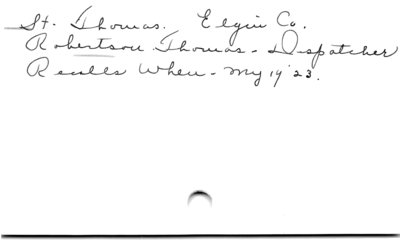 St. Thomas. Elgin Co.
Robertson Thomas - Dispatcher
Recalls When - My 19 '23.